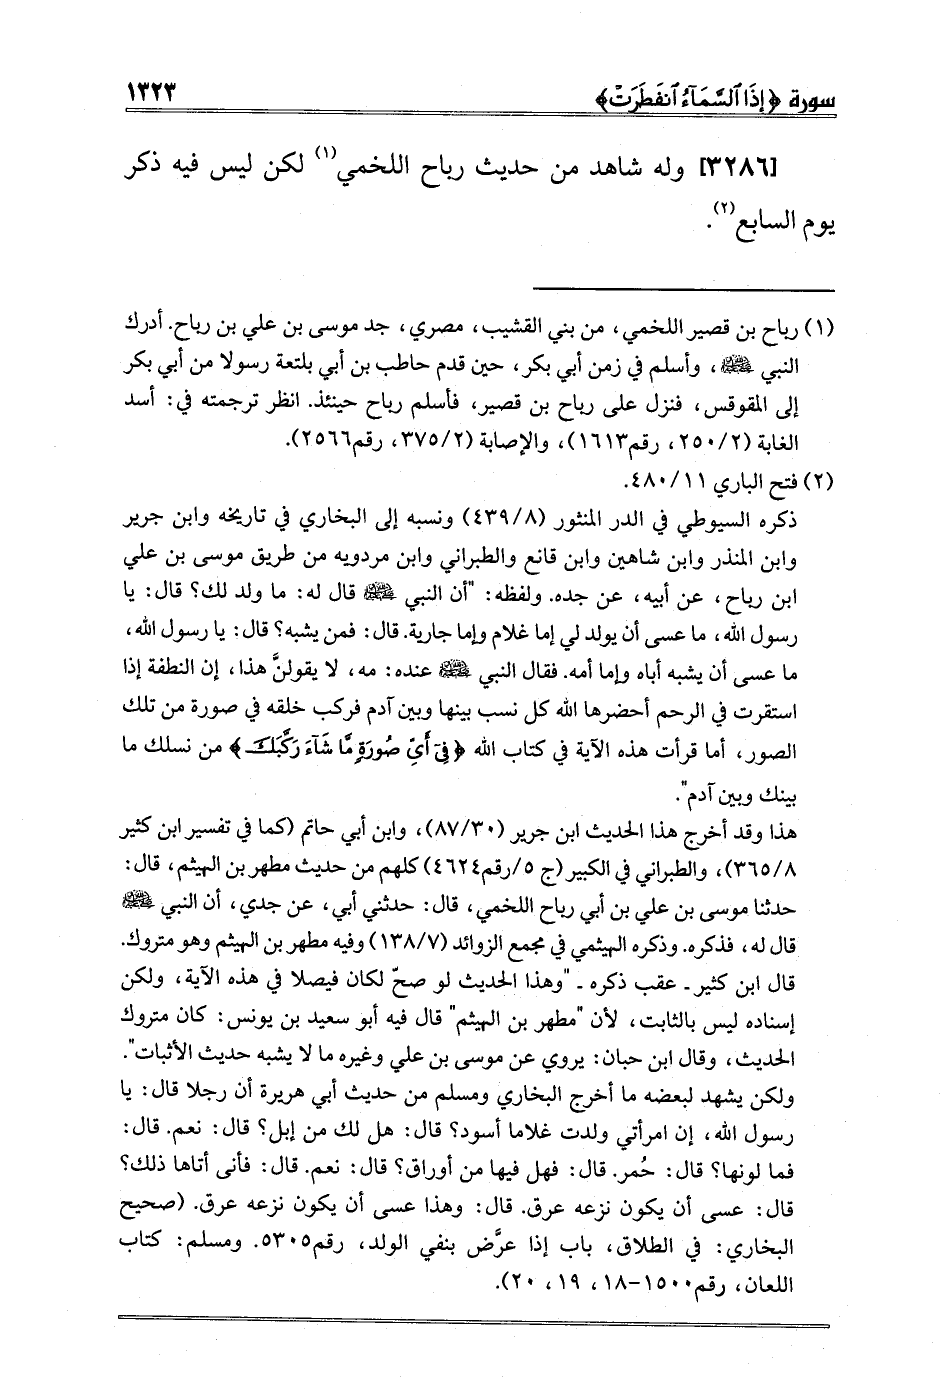 سورة ﴿إِذَا ٱلسَّمَآءُ ٱنفَطَرَتْ﴾ ١٣٢٣
[٣٢٨٦] وله شاهد من حديث رباح اللخمي(١) لكن ليس فيه ذكر
يوم السابع(٢).
(١) رباح بن قصير اللخمي، من بني القشيب، مصري، جد موسى بن علي بن رباح. أدرك
النبي ﷺ، وأسلم في زمن أبي بكر، حين قدم حاطب بن أبي بلتعة رسولا من أبي بكر
إلى المقوقس، فنزل على رباح بن قصير، فأسلم رباح حينئذ. انظر ترجمته في: أسد
الغابة (٢/٢٥٠، رقم١٦١٣)، والإصابة (٢/٣٧٥، رقم٢٥٦٦).
(٢) فتح الباري ١١/٤٨٠.
ذكره السيوطي في الدر المنثور (٨/٤٣٩) ونسبه إلى البخاري في تاريخه وابن جرير
وابن المنذر وابن شاهين وابن قانع والطبراني وابن مردويه من طريق موسى بن علي
ابن رباح، عن أبيه، عن جده. ولفظه: "أن النبي ﷺ قال له: ما ولد لك؟ قال: يا
رسول الله، ما عسى أن يولد لي إما غلام وإما جارية. قال: فمن يشبه؟ قال: يا رسول الله،
ما عسى أن يشبه أباه وإما أمه. فقال النبي ﷺ عنده: مه، لا يقولنَّ هذا، إن النطفة إذا
استقرت في الرحم أحضرها الله كل نسب بينها وبين آدم فركب خلقه في صورة من تلك
الصور، أما قرأت هذه الآية في كتاب الله ﴿فِىٓ أَىِّ صُورَةٍ مَّا شَآءَ رَكَّبَكَ﴾ من نسلك ما
بينك وبين آدم".
هذا وقد أخرج هذا الحديث ابن جرير (٣٠/٨٧)، وابن أبي حاتم (كما في تفسير ابن كثير
٨/٣٦٥)، والطبراني في الكبير (ج ٥/رقم٤٦٢٤) كلهم من حديث مطهر بن الهيثم، قال:
حدثنا موسى بن علي بن أبي رباح اللخمي، قال: حدثني أبي، عن جدي، أن النبي ﷺ
قال له، فذكره. وذكره الهيثمي في مجمع الزوائد (٧/١٣٨) وفيه مطهر بن الهيثم وهو متروك.
قال ابن كثير - عقب ذكره - "وهذا الحديث لو صحّ لكان فيصلا في هذه الآية، ولكن
إسناده ليس بالثابت، لأن "مطهر بن الهيثم" قال فيه أبو سعيد بن يونس: كان متروك
الحديث، وقال ابن حبان: يروي عن موسى بن علي وغيره ما لا يشبه حديث الأثبات".
ولكن يشهد لبعضه ما أخرج البخاري ومسلم من حديث أبي هريرة أن رجلا قال: يا
رسول الله، إن امرأتي ولدت غلاما أسود؟ قال: هل لك من إبل؟ قال: نعم. قال:
فما لونها؟ قال: حُمر. قال: فهل فيها من أوراق؟ قال: نعم. قال: فأنى أتاها ذلك؟
قال: عسى أن يكون نزعه عرق. قال: وهذا عسى أن يكون نزعه عرق. (صحيح
البخاري: في الطلاق، باب إذا عرَّض بنفي الولد، رقم٥٣٠٥. ومسلم: كتاب
اللعان، رقم١٥٠٠-١٨، ١٩، ٢٠).